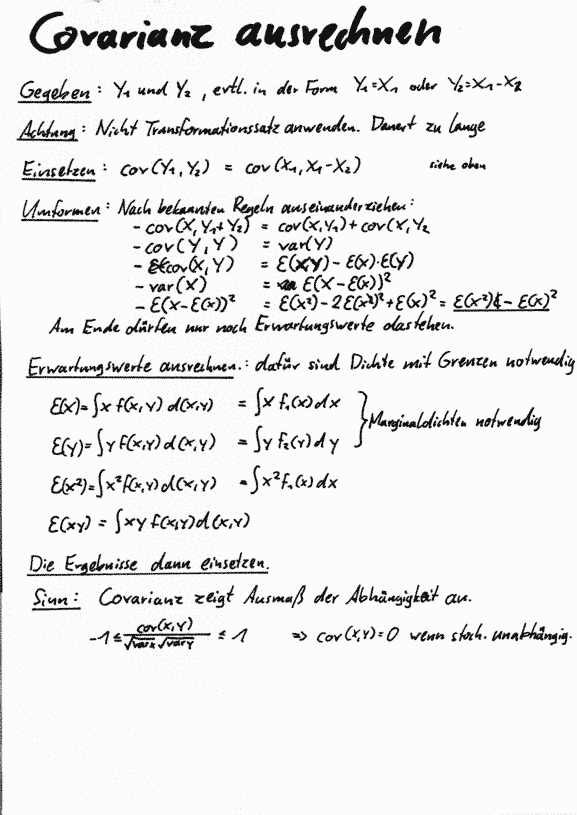 Covarianz ausrechnen
Gegeben: Y₁ und Y₂, evtl. in der Form Y₁=X₁ oder Y₂=X₁-X₂
Achtung: Nicht Transformationssatz anwenden. Dauert zu lange
Einsetzen: cov(Y₁,Y₂) = cov(X₁,X₁-X₂) siehe oben
Umformen: Nach bekannten Regeln auseinanderziehen:
- cov(X,Y₁+Y₂) = cov(X,Y₁)+cov(X,Y₂
- cov(Y,Y) = var(Y)
- cov(X,Y) = E(XY) - E(X)·E(Y)
- var(X) = E(X-E(X))²
- E(X-E(X))² = E(X²)-2E(X²)²+E(X)² = E(X²)-E(X)²
Am Ende dürfen nur noch Erwartungswerte dastehen.
Erwartungswerte ausrechnen.: dafür sind Dichte mit Grenzen notwendig
E(X)=∫x f(x,y) d(x,y) = ∫x f₁(x)dx
E(y)=∫y f(x,y) d(x,y) = ∫y f₂(y)dy
} Marginaldichten notwendig
E(x²)=∫x² f(x,y) d(x,y) = ∫x² f₁(x)dx
E(xy) = ∫xy f(x,y) d(x,y)
Die Ergebnisse dann einsetzen.
Sinn: Covarianz zeigt Ausmaß der Abhängigkeit an.
-1 ≤ cov(X,Y)/√varx √vary ≤ 1 => cov(X,Y)=0 wenn stoch. unabhängig.